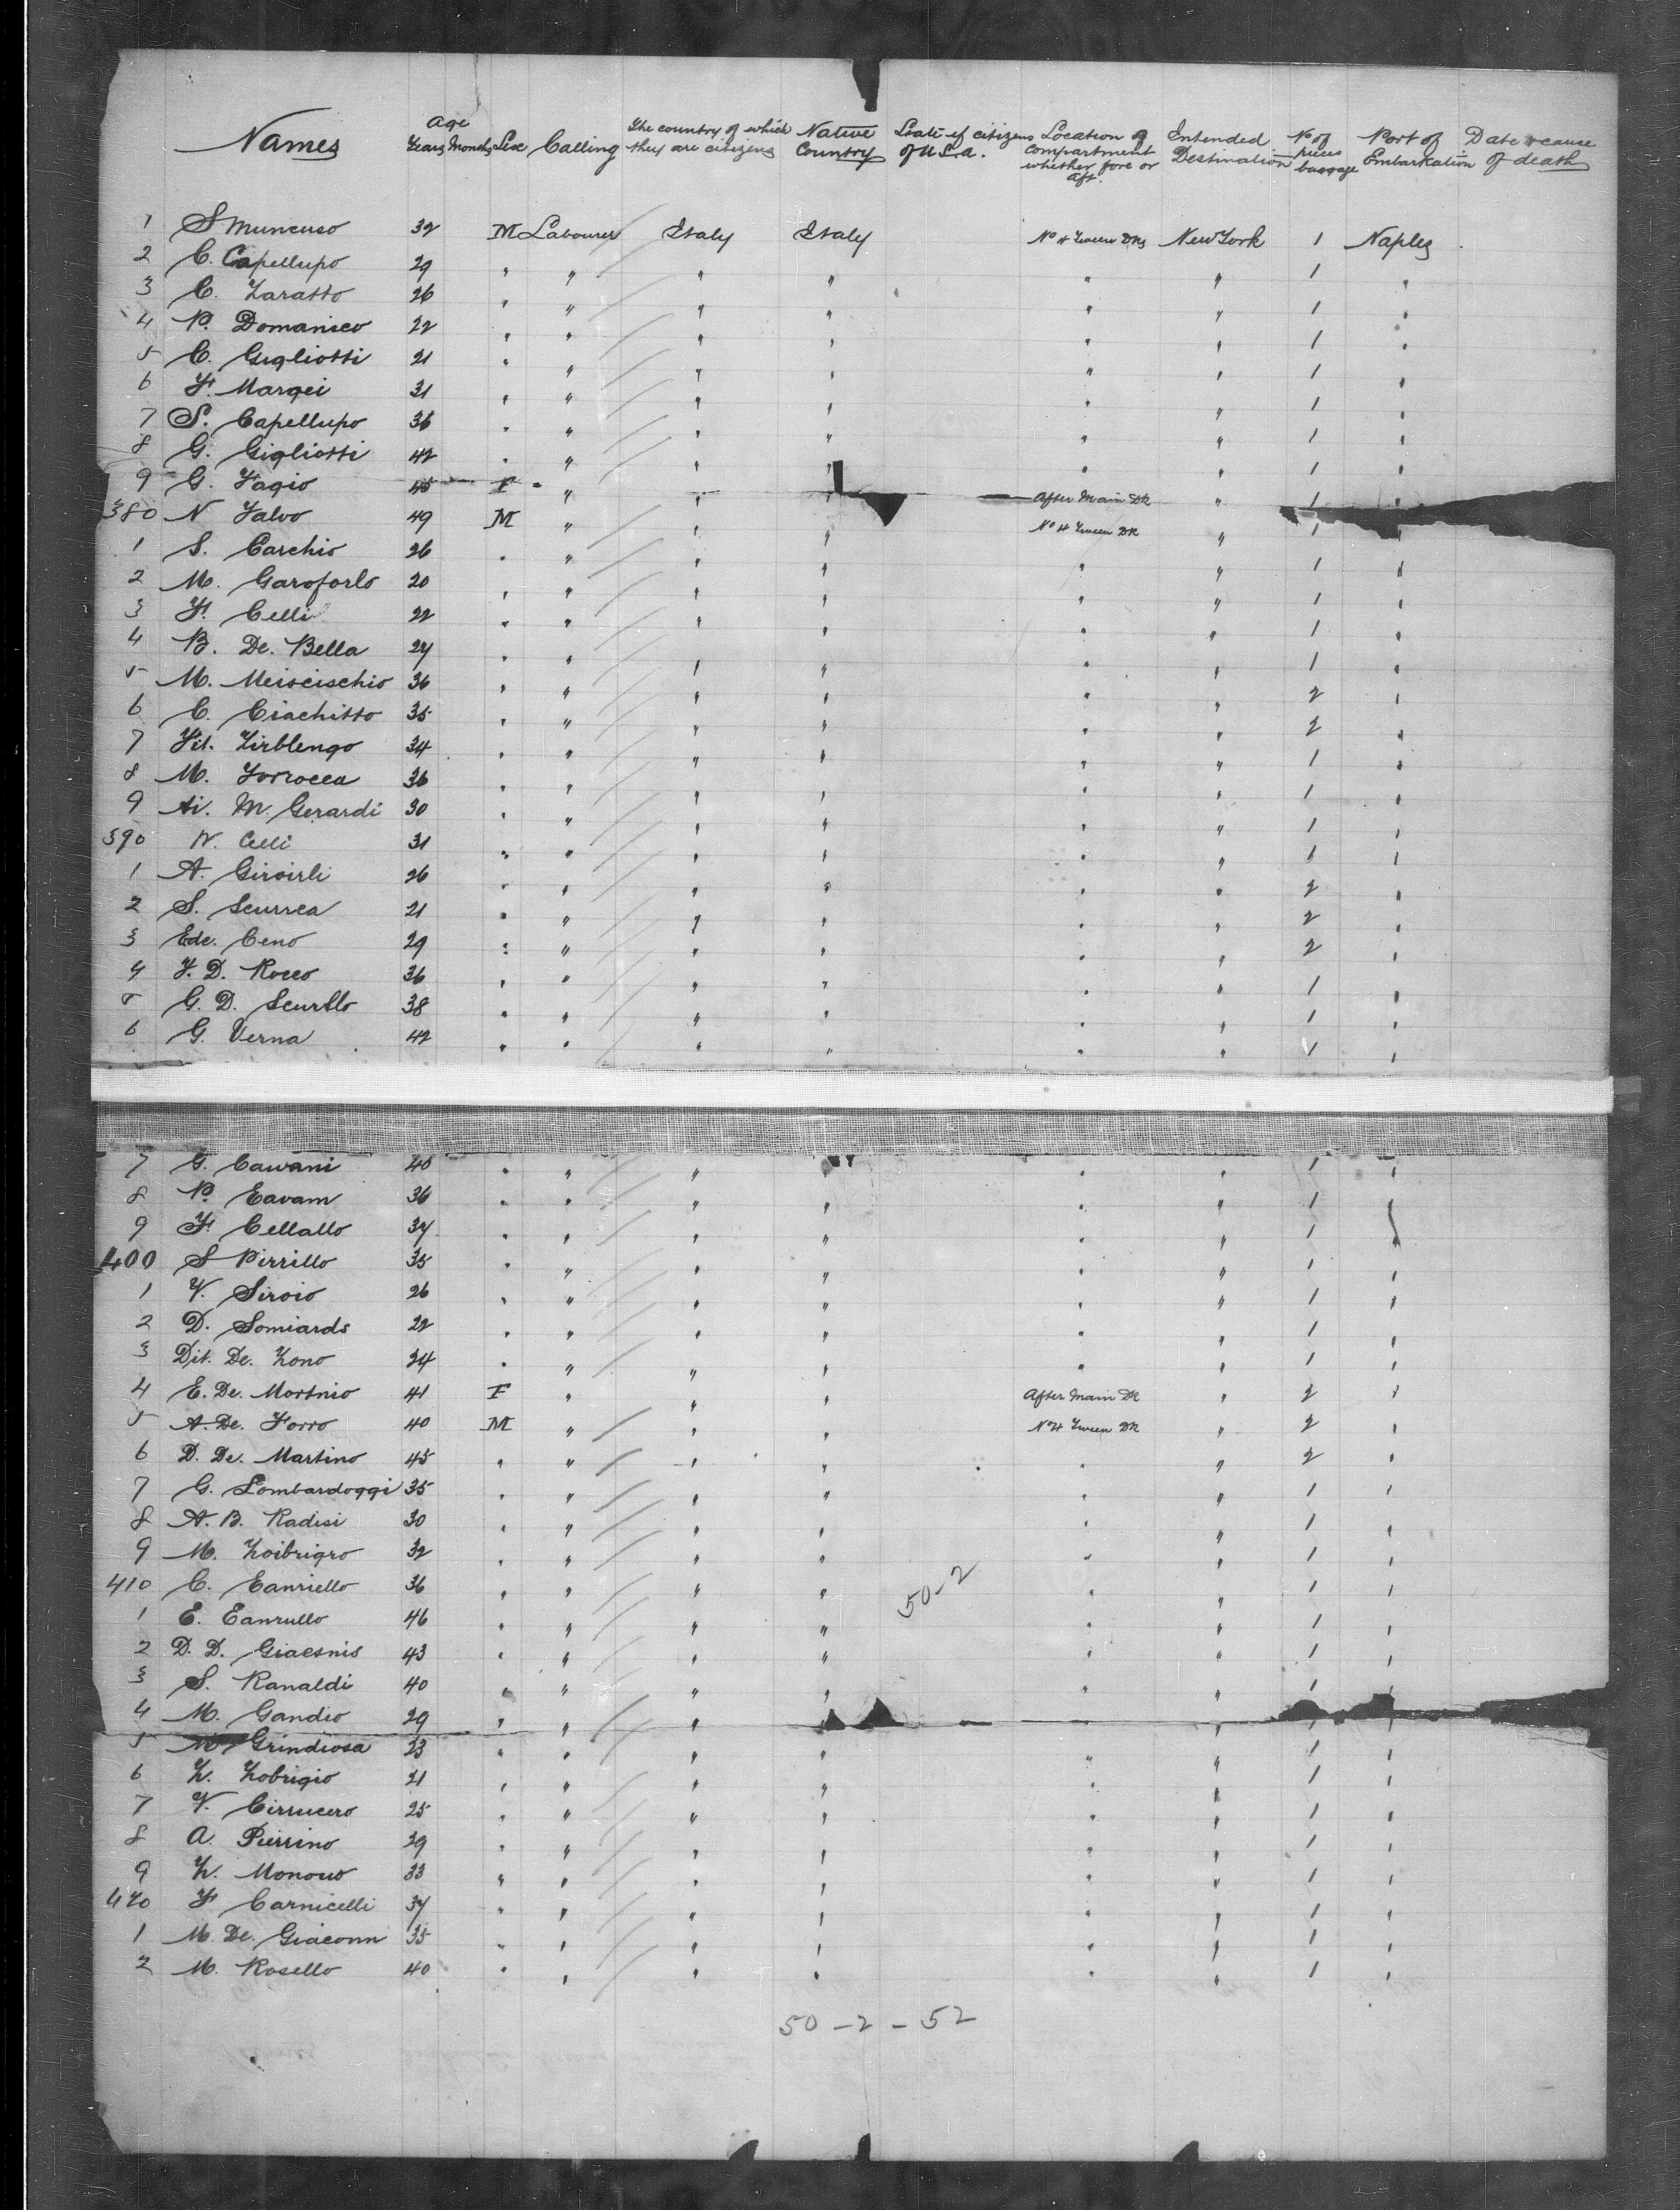 Names Age Years Months Sex Calling The country of which they are citizens Native Country State if citizens of U.S.A. Location of compartment whether fore or Aft. Intended Destination No of pieces baggage Port of Embarkation Date & cause of death
1 S Muncuso 32 M Labourer Italy Italy No 4 Tween Dks New York 1 Naples
2 C. Capellupo 29 " " " " " " 1 "
3 C. Zaratto 26 " " " " " " 1 "
4 P. Domanico 22 " " " " " " 1 "
5 C. Gigliotti 21 " " " " " " 1 "
6 F. Margei 31 " " " " " " 1 "
7 S. Capellupo 36 " " " " " " 1 "
8 G. Gigliotti 42 " " " " " " 1 "
9 G. Fagio 45 F " " " After Main Dk " 1 "
380 N Falvo 49 M " " " No 4 Tween Dk " 1 "
1 S. Carchio 26 " " " " " " 1 "
2 M. Garoforlo 20 " " " " " " 1 "
3 F. Celli 22 " " " " " " 1 "
4 B. De. Bella 27 " " " " " " 1 "
5 M. Meiscischio 36 " " " " " " 2 "
6 C. Ciachitto 35 " " " " " " 2 "
7 Fil. Zirblengo 34 " " " " " " 1 "
8 M. Forrocca 36 " " " " " " 1 "
9 Ai. M. Gerardi 30 " " " " " " 1 "
390 N. Celi 31 " " " " " " 1 "
1 A. Giroirli 26 " " " " " " 2 "
2 S. Scurrea 21 " " " " " " 2 "
3 Ede. Ceno 29 " " " " " " 2 "
4 F. D. Rocco 36 " " " " " " 1 "
5 G. D. Scurllo 38 " " " " " " 1 "
6 G. Verna 42 " " " " " " 1 "
7 G. Cawani 40 " " " " " " 1 "
8 P. Eavam 36 " " " " " " 1 "
9 F. Cellallo 37 " " " " " " 1
400 S Pirrillo 35 " " " " " " 1 "
1 V. Siroio 26 " " " " " " 1 "
2 D. Somiards 22 " " " " " " 1 "
3 Dit. De. Zono 24 " " " " " " 1 "
4 E. De. Mortnio 41 F " " " After Main Dk " 2 "
5 A. De. Forro 40 M " " " No 4 Tween Dk " 2 "
6 D. De. Martino 45 " " " " " " 2 "
7 G. Lombardoggi 35 " " " " " " 1 "
8 A. B. Radisi 30 " " " " " " 1 "
9 M. Zoibrigro 32 " " " " " " 1 "
410 C. Eanriello 36 " " " " " " 1 "
50-2
1 E. Eanrullo 46 " " " " " " 1 "
2 D. D. Giacsnis 43 " " " " " " 1 "
3 S. Ranaldi 40 " " " " " " 1 "
4 M. Gandio 29 " " " " " " "
5 M Grindiosa 23 " " " " " " 1 "
6 Z. Zobrigio 21 " " " " " " 1 "
7 V. Cirrucero 25 " " " " " " 1 "
8 A. Pierrino 39 " " " " " " 1 "
9 Z. Monoco 33 " " " " " " 1 "
420 F Carnicelli 37 " " " " " " 1 "
1 M. De. Giaconn 35 " " " " " " 1 "
2 M. Rosello 40 " " " " " " 1 "
50 - 2 - 52